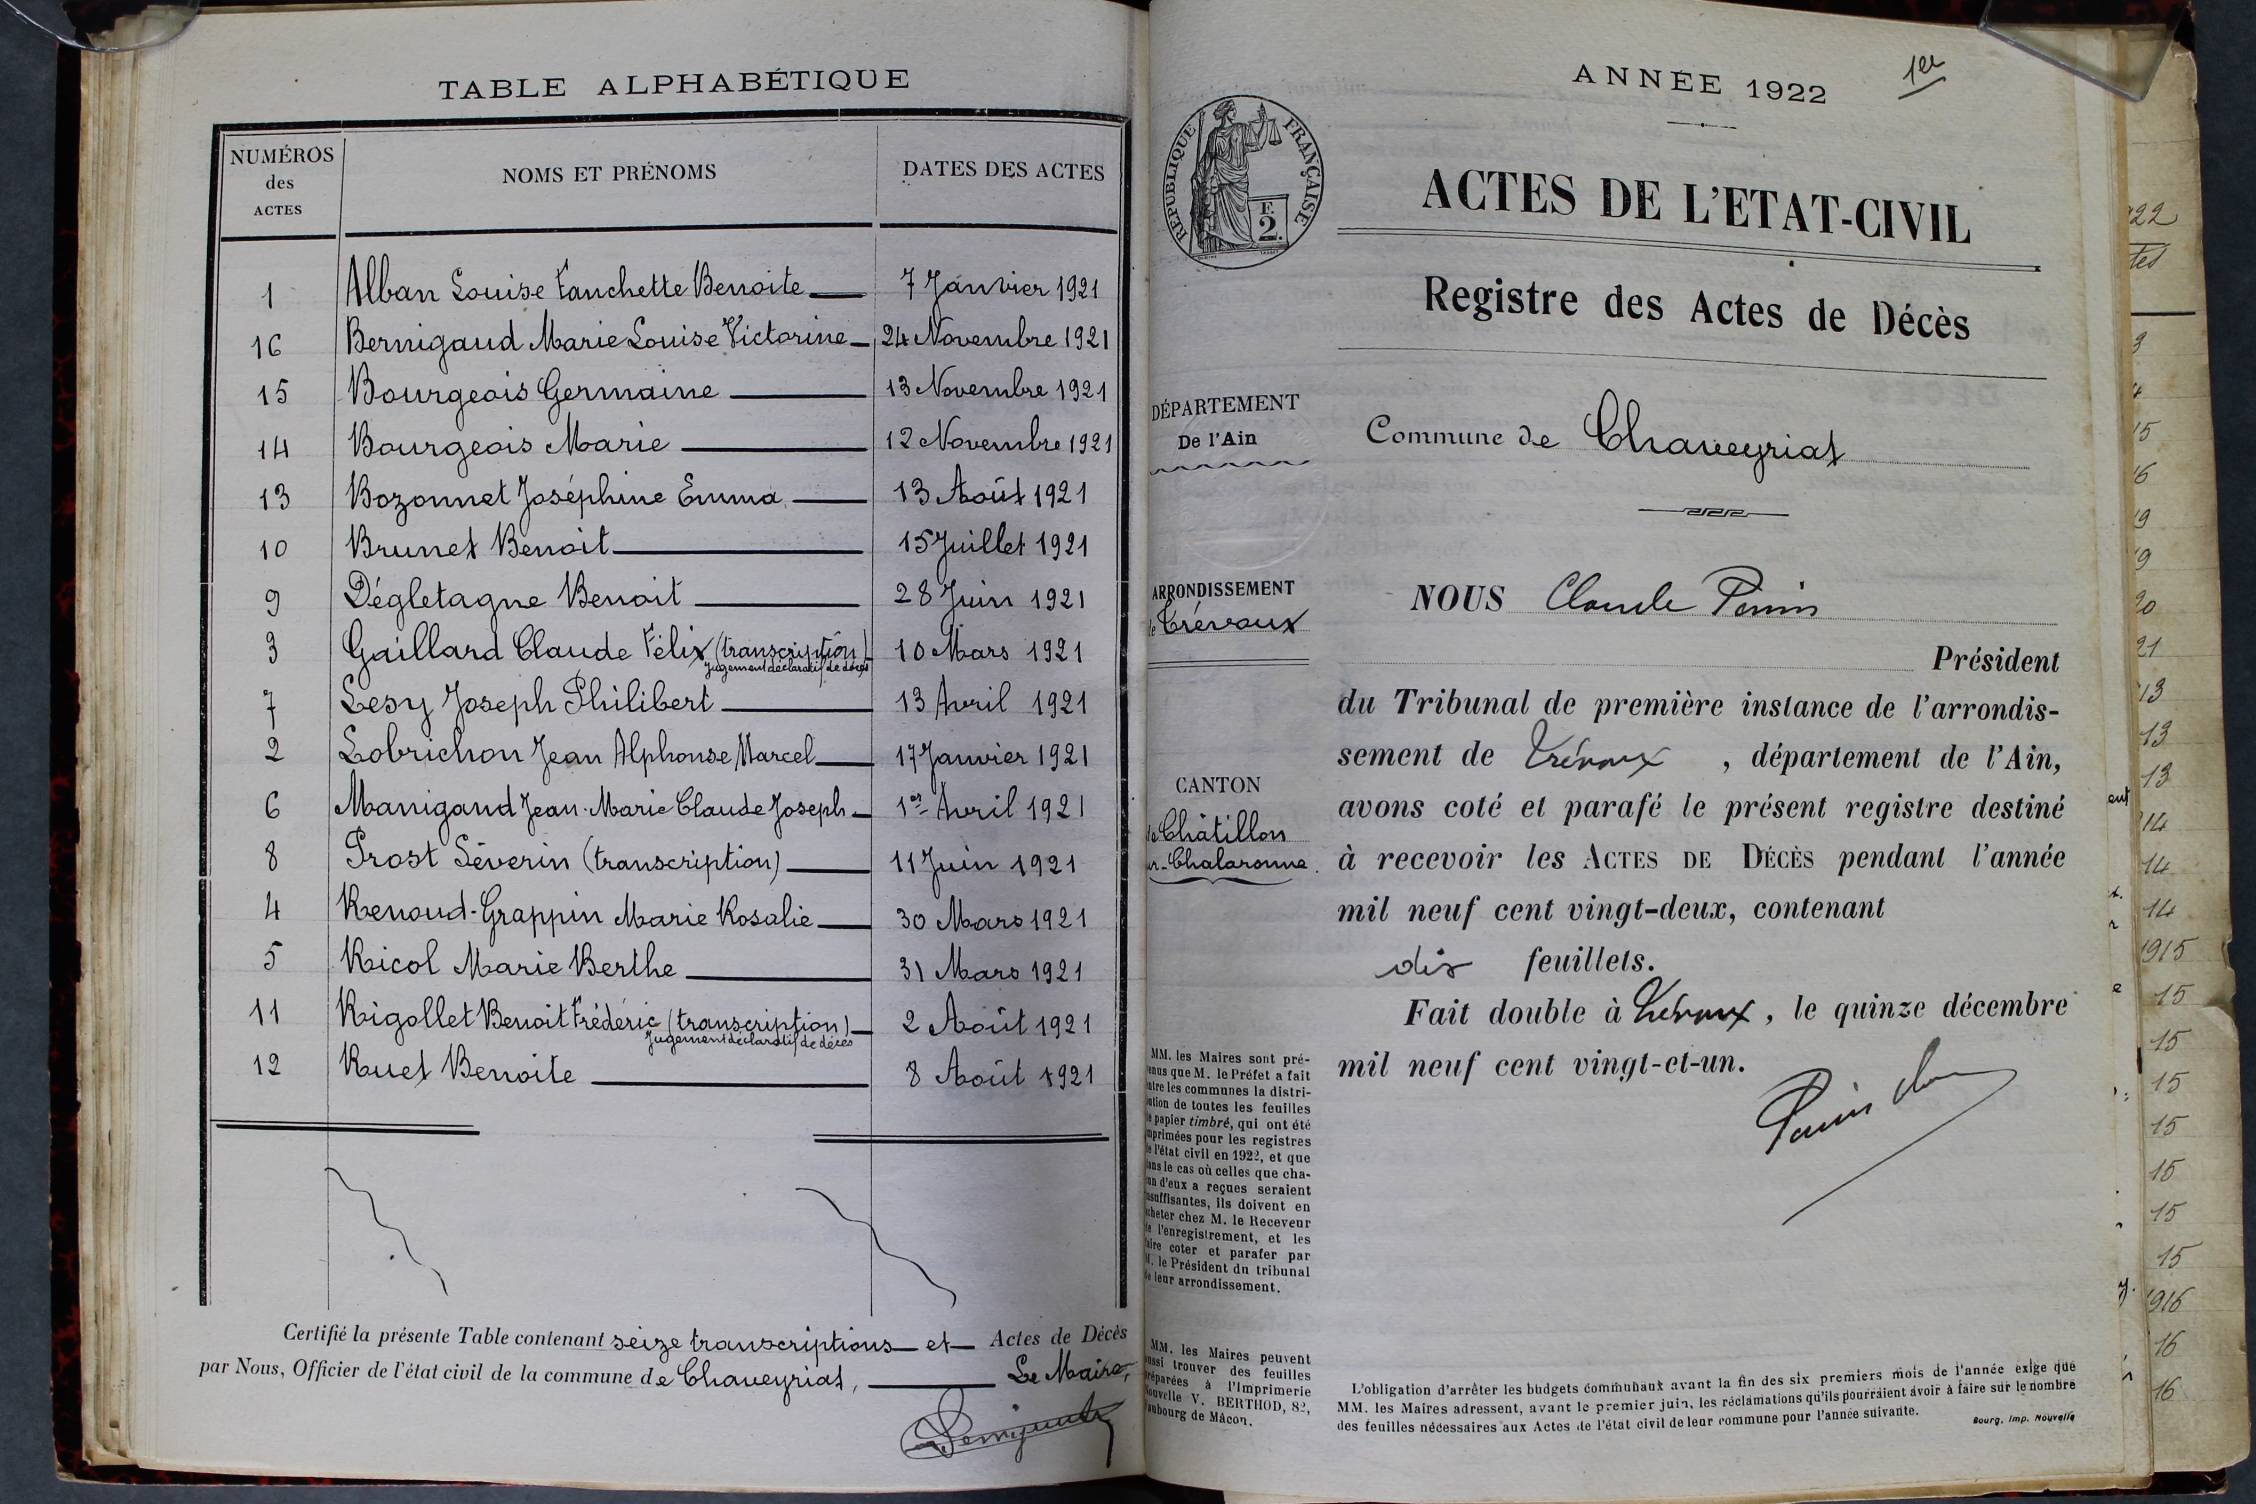 TABLE ALPHABÉTIQUE
NUMÉROS des ACTES NOMS ET PRÉNOMS DATES DES ACTES
1 Alban Louise Fanchette Benoite 7 Janvier 1921
16 Bernigaud Marie Louise Victorine 24 Novembre 1921
15 Bourgeois Germaine 13 Novembre 1921
14 Bourgeois Marie 12 Novembre 1921
13 Bozonnet Joséphine Emma 13 Août 1921
10 Brunet Benoit 15 Juillet 1921
9 Dégletagne Benoit 28 Juin 1921
3 Gaillard Claude Félix (transcription) 10 Mars 1921
Jugement déclaratif de décès
7 Lesy Joseph Philibert 13 Avril 1921
2 Lobrichon Jean Alphonse Marcel 17 Janvier 1921
6 Manigand Jean-Marie Claude Joseph 1er Avril 1921
8 Prost Séverin (transcription) 11 Juin 1921
4 Renoud-Grappin Marie Rosalie 30 Mars 1921
5 Ricol Marie Berthe 31 Mars 1921
11 Rigollet Benoit Frédéric (transcription) 2 Août 1921
Jugement déclaratif de décès
12 Ruet Benoite 8 Août 1921
Certifié la présente Table contenant seize transcriptions et Actes de Décès
par Nous, Officier de l'état civil de la commune de Chaveyriat, Le Maire,
ANNÉE 1922
1er
RÉPUBLIQUE FRANÇAISE
F.
2.
ACTES DE L'ETAT-CIVIL
Registre des Actes de Décès
DÉPARTEMENT
De l'Ain
Commune de Chaveyriat
ARRONDISSEMENT
de Trévoux
NOUS Claude Perrin
Président
du Tribunal de première instance de l'arrondis-
sement de Trévoux, département de l'Ain,
CANTON
de Châtillon
ur-Chalaronne
avons coté et parafé le présent registre destiné
à recevoir les ACTES DE DÉCÈS pendant l'année
mil neuf cent vingt-deux, contenant
dix feuillets.
Fait double à Trévoux, le quinze décembre
mil neuf cent vingt-et-un.
MM. les Maires sont pré-
enus que M. le Préfet a fait
ntre les communes la distri-
ution de toutes les feuilles
e papier timbré, qui ont été
mprimées pour les registres
e l'état civil en 1922, et que
ans le cas où celles que cha-
un d'eux a reçues seraient
nsuffisantes, ils doivent en
cheter chez M. le Receveur
e l'enregistrement, et les
aire coter et parafer par
M. le Président du tribunal
e leur arrondissement.
MM. les Maires peuvent
ussi trouver des feuilles
réparées à l'Imprimerie
Nouvelle V. BERTHOD, 82,
aubourg de Mâcon.
L'obligation d'arrêter les budgets communaux avant la fin des six premiers mois de l'année exige que
MM. les Maires adressent, avant le premier juin, les réclamations qu'ils pourraient avoir à faire sur le nombre
des feuilles nécessaires aux Actes de l'état civil de leur commune pour l'année suivante.
Bourg, Imp. Nouvelle